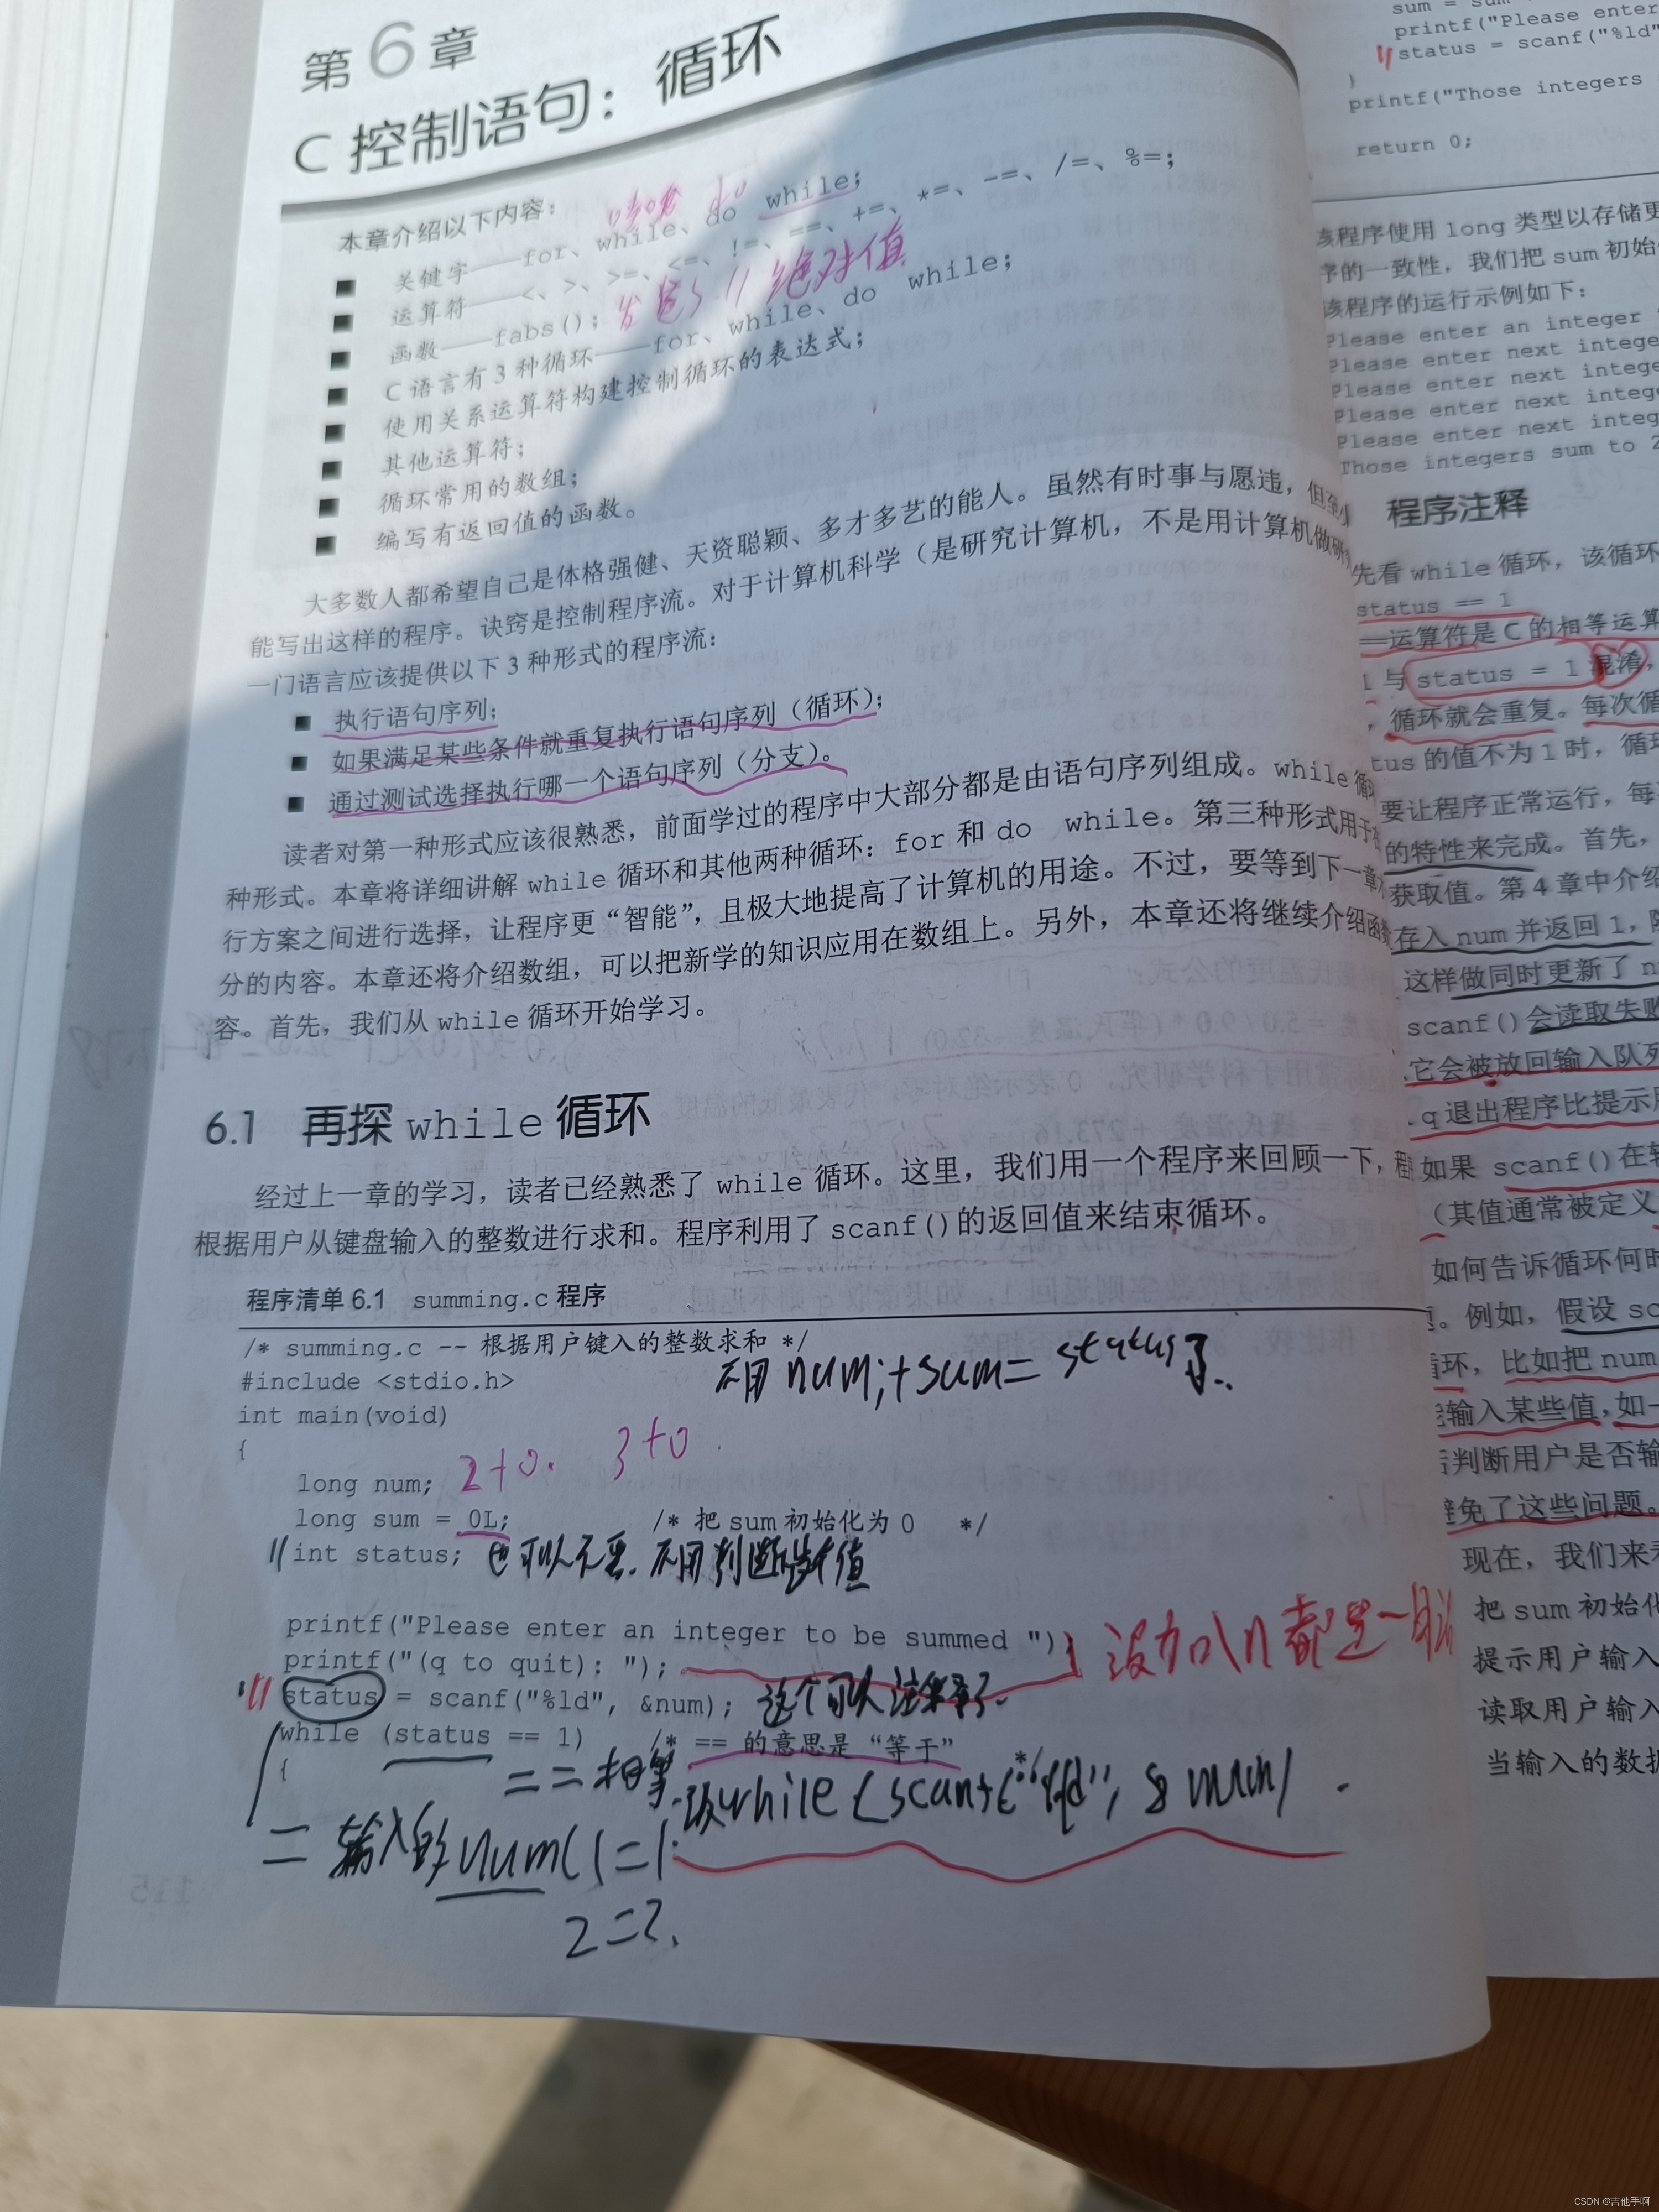 第6章
C 控制语句：循环
本章介绍以下内容：
■ 关键字——for、while、do while；
■ 运算符——<、>、>=、<=、!=、==、+=、*=、-=、/=、%=；
■ 函数——fabs()； 绝对值
■ C 语言有 3 种循环——for、while、do while；
■ 使用关系运算符构建控制循环的表达式；
■ 其他运算符；
■ 循环常用的数组；
■ 编写有返回值的函数。
大多数人都希望自己是体格强健、天资聪颖、多才多艺的能人。虽然有时事与愿违，但至少
能写出这样的程序。诀窍是控制程序流。对于计算机科学（是研究计算机，不是用计算机做研
一门语言应该提供以下 3 种形式的程序流：
■ 执行语句序列；
■ 如果满足某些条件就重复执行语句序列（循环）；
■ 通过测试选择执行哪一个语句序列（分支）。
读者对第一种形式应该很熟悉，前面学过的程序中大部分都是由语句序列组成。while 循
种形式。本章将详细讲解 while 循环和其他两种循环：for 和 do while。第三种形式用于
行方案之间进行选择，让程序更“智能”，且极大地提高了计算机的用途。不过，要等到下一章
分的内容。本章还将介绍数组，可以把新学的知识应用在数组上。另外，本章还将继续介绍函
容。首先，我们从 while 循环开始学习。
6.1 再探 while 循环
经过上一章的学习，读者已经熟悉了 while 循环。这里，我们用一个程序来回顾一下，程
根据用户从键盘输入的整数进行求和。程序利用了 scanf()的返回值来结束循环。
程序清单 6.1 summing.c 程序
/* summing.c -- 根据用户键入的整数求和 */
不用 num;+sum= status了..
#include <stdio.h>
int main(void)
{
2+0. 3+0.
long num;
long sum = 0L; /* 把 sum 初始化为 0 */
// int status; 也可以不要. 不用判断 值
printf("Please enter an integer to be summed ");
printf("(q to quit): "); 没加\n都是一
// status = scanf("%ld", &num); 这个可以注释了.
while (status == 1) /* == 的意思是“等于” */
{
== 相等. 改while (scanf("%ld", &num)
= 输入的num(1=1.
2=2.
sum = sum
printf("Please enter
// status = scanf("%ld"
}
printf("Those integers
return 0;
该程序使用 long 类型以存储更
序的一致性，我们把 sum 初始
该程序的运行示例如下：
Please enter an integer
Please enter next intege
Please enter next intege
Please enter next intege
Please enter next integ
Those integers sum to 2
程序注释
先看 while 循环，该循环
status == 1
==运算符是 C 的相等运算
1 与 status = 1 混淆，
，循环就会重复。每次循
tus 的值不为 1 时，循环
要让程序正常运行，每
的特性来完成。首先，
获取值。第 4 章中介绍
存入 num 并返回 1，
这样做同时更新了 n
scanf()会读取失败
它会被放回输入队列
q 退出程序比提示
如果 scanf()在
（其值通常被定义
如何告诉循环何时
。例如，假设 sc
循环，比如把 num
输入某些值，如一
后判断用户是否输
避免了这些问题。
现在，我们来看
把 sum 初始化
提示用户输入
读取用户输入
当输入的数据
CSDN @吉他手啊